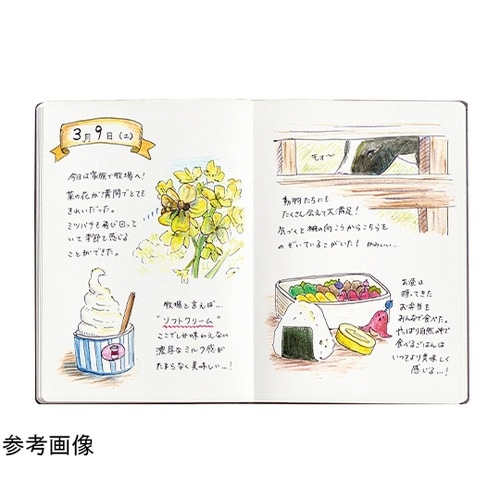 3月9日(土)
今日は家族で牧場へ!
菜の花が満開でとても
きれいだった。
ミツバチも飛び回って
いて季節を感じる
ことができた。
牧場と言えば…
"ソフトクリーム"
ここでしか味わえない
濃厚なミルク感が
たまらなく美味しい…!
モォ〜
動物たちにも
たくさん会えて大満足!
気づくと柵の向こうからこちらを
のぞいている子がいた! かわいい…
お昼は
持ってきた
お弁当を
みんなで食べた。
やっぱり自然の中で
食べるごはんは
いつもより美味しく
感じる…!
参考画像